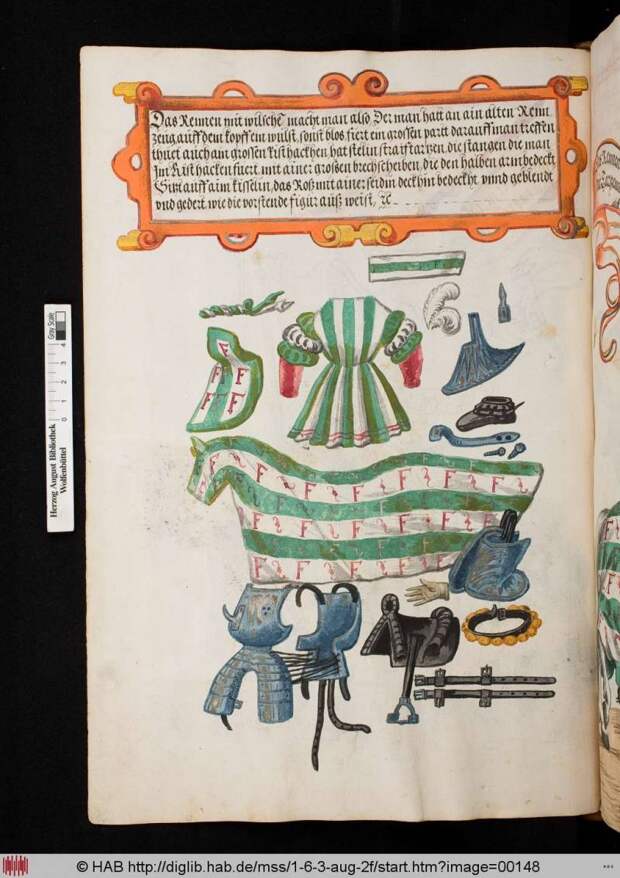 Das Rennen mit wilschē macht man also Der man hatt an ain alten Renn
zeug auff dem kopff ein wulst, sonst blos, fiert ein grossen part darauff man treffen
thuet auch am grossen rist hackhen hat stelin straiftartzen die stangen die man
Im Rist hacken fuert mit ainer großen brechscheiben, die den halben arm bedeckt
Sitzt auff aim kisselin, das Roß mit ainer seidin deckhin bedeckht vnnd geblendt
vnd gedert wie die vorstende figur auß weist, ꝛc
F F
F F
F F F
F F F F F F
F F F F F
F F F F
Herzog August Bibliothek
Wolfenbüttel
0 1 2 3 4
Gray Scale
© HAB http://diglib.hab.de/mss/1-6-3-aug-2f/start.htm?image=00148